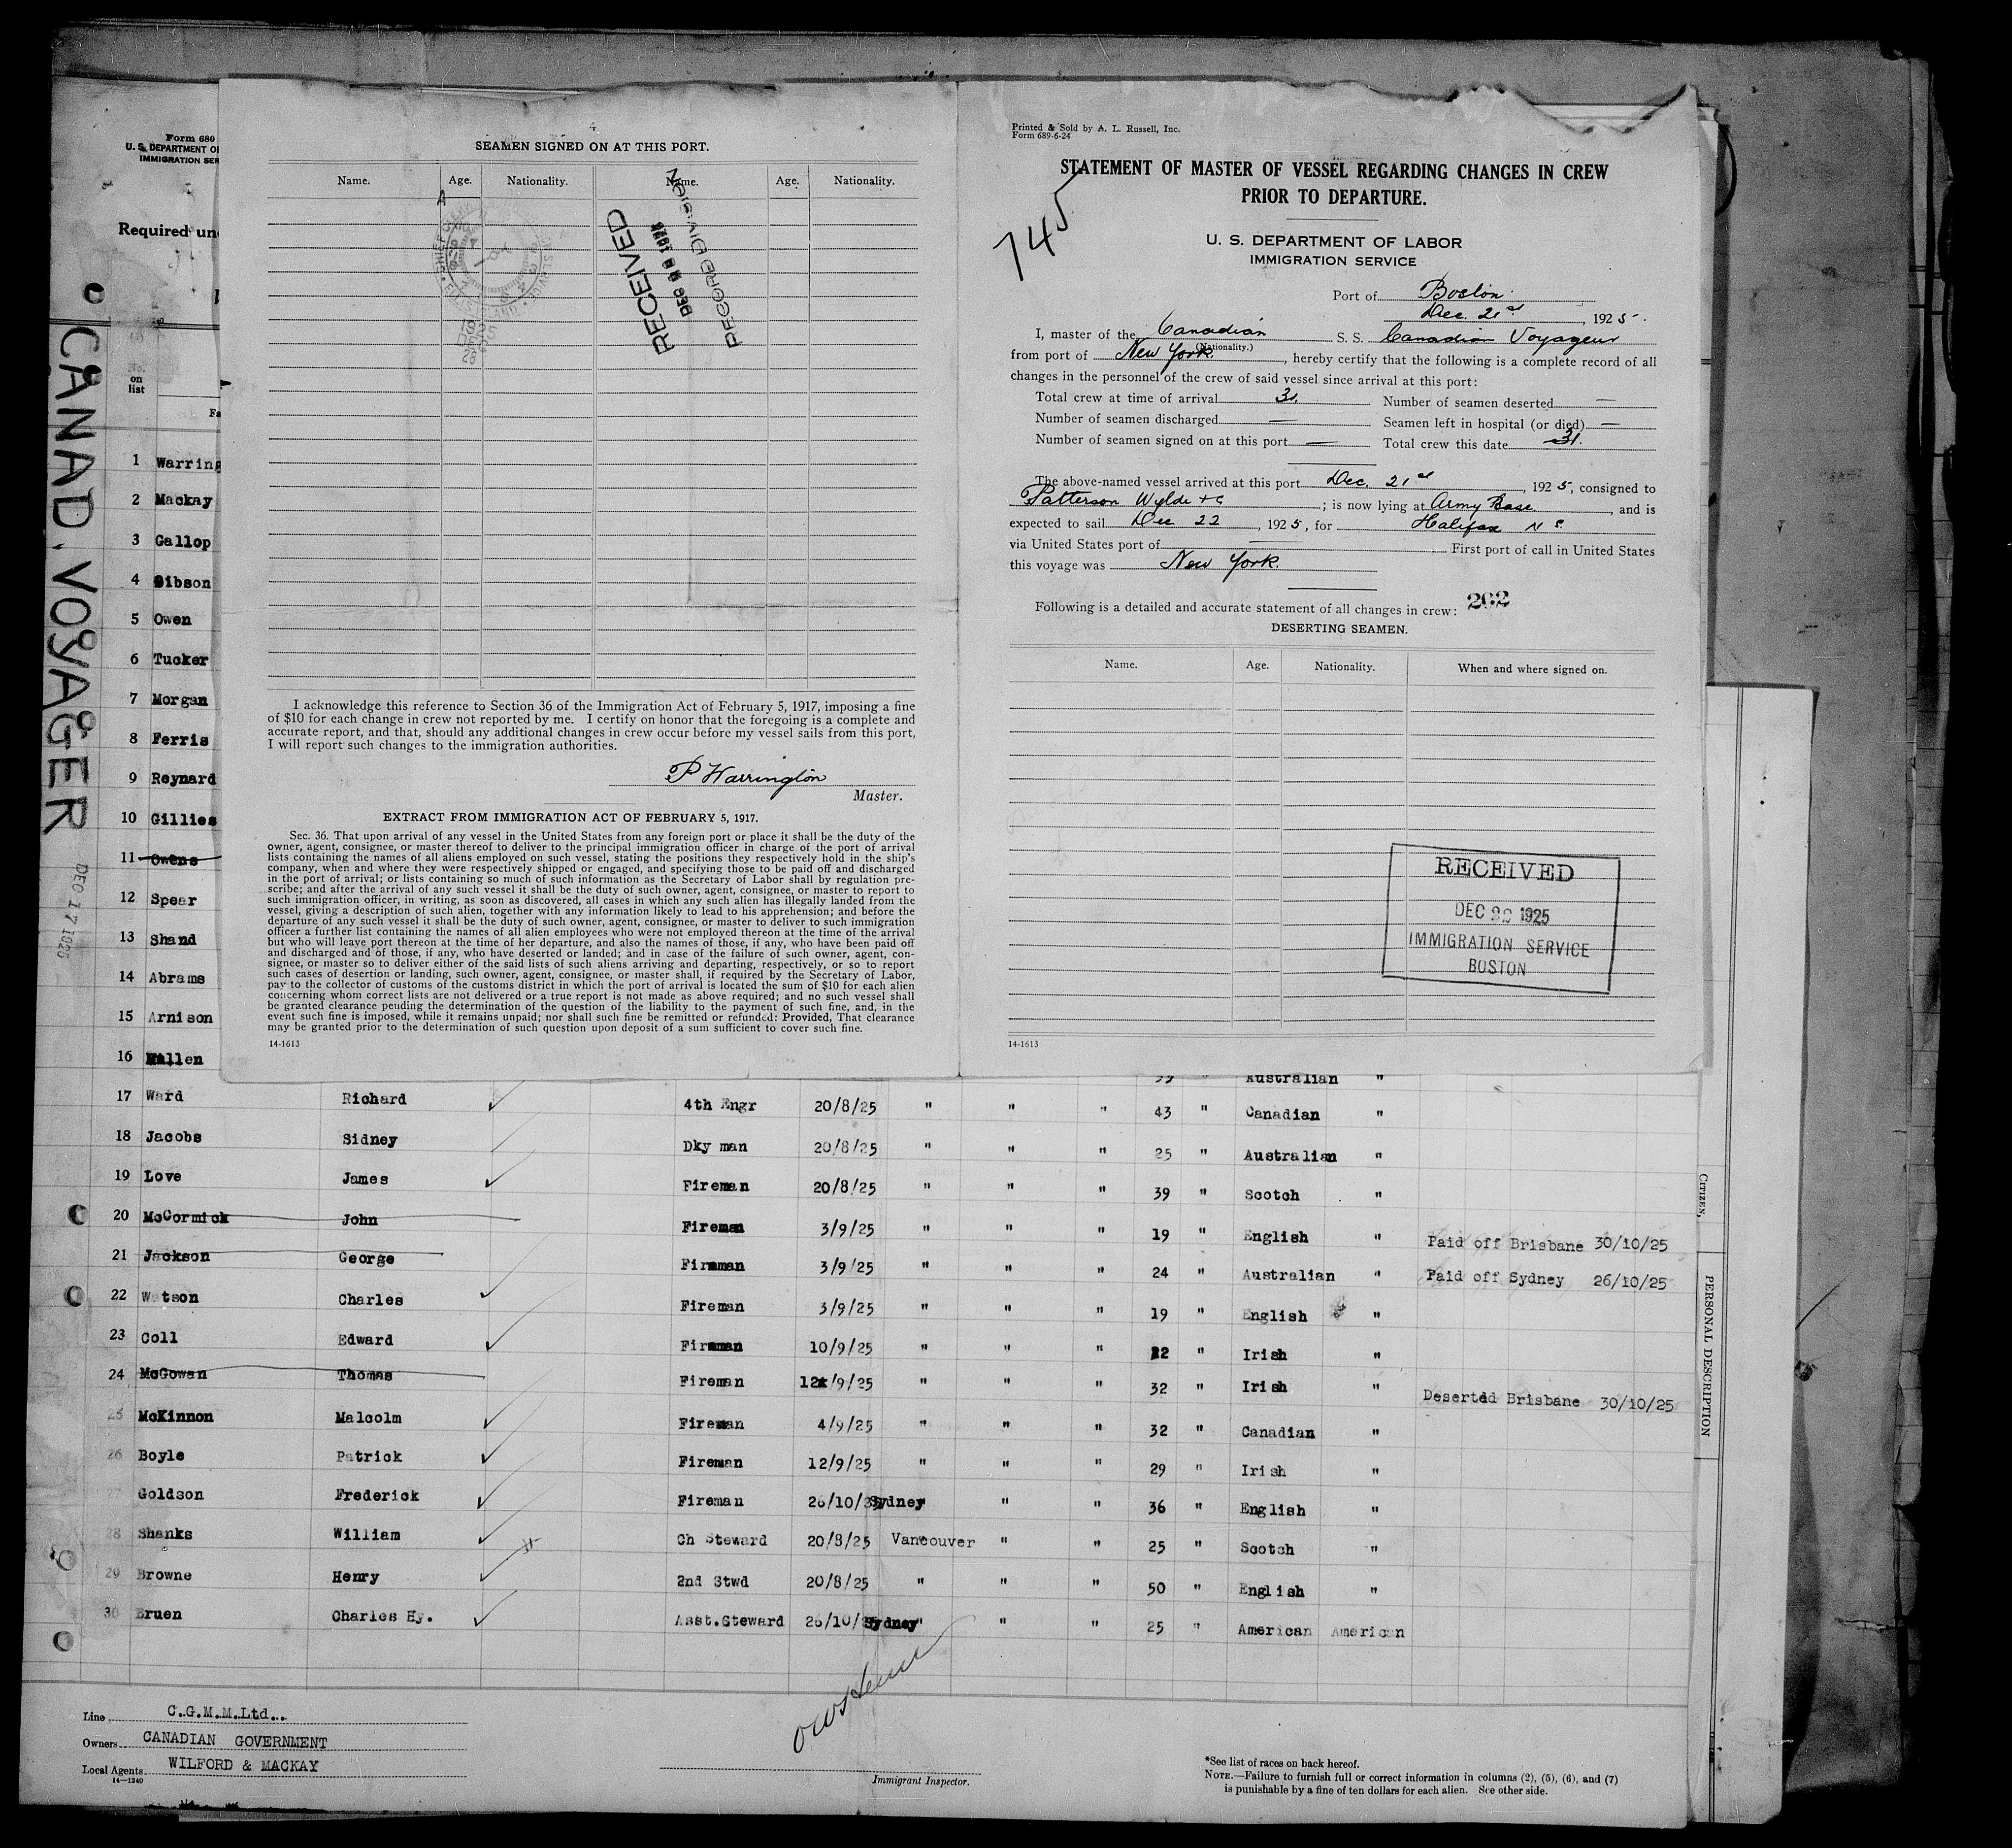 Form 680
U. S. DEPARTMENT OF
IMMIGRATION SER
Required un
on
list
CANAD. VOYAGER
DEC 17 1925
1 Warring
2 Mackay
3 Gallop
4 Gibson
5 Owen
6 Tucker
7 Morgan
8 Ferris
9 Reynard
10 Gillies
11 Owens
12 Spear
13 Shand
14 Abrams
15 Arnison
16 Wallen
SEAMEN SIGNED ON AT THIS PORT.
Name. Age. Nationality. Name. Age. Nationality.
RECEIVED
RECORD DIVISION
I acknowledge this reference to Section 36 of the Immigration Act of February 5, 1917, imposing a fine
of $10 for each change in crew not reported by me. I certify on honor that the foregoing is a complete and
accurate report, and that, should any additional changes in crew occur before my vessel sails from this port,
I will report such changes to the immigration authorities.
P Warrington
Master.
EXTRACT FROM IMMIGRATION ACT OF FEBRUARY 5, 1917.
Sec. 36. That upon arrival of any vessel in the United States from any foreign port or place it shall be the duty of the
owner, agent, consignee, or master thereof to deliver to the principal immigration officer in charge of the port of arrival
lists containing the names of all aliens employed on such vessel, stating the positions they respectively hold in the ship's
company, when and where they were respectively shipped or engaged, and specifying those to be paid off and discharged
in the port of arrival; or lists containing so much of such information as the Secretary of Labor shall by regulation pre-
scribe; and after the arrival of any such vessel it shall be the duty of such owner, agent, consignee, or master to report to
such immigration officer, in writing, as soon as discovered, all cases in which any such alien has illegally landed from the
vessel, giving a description of such alien, together with any information likely to lead to his apprehension; and before the
departure of any such vessel it shall be the duty of such owner, agent, consignee, or master to deliver to such immigration
officer a further list containing the names of all alien employees who were not employed thereon at the time of the arrival
but who will leave port thereon at the time of her departure, and also the names of those, if any, who have been paid off
and discharged and of those, if any, who have deserted or landed; and in case of the failure of such owner, agent, con-
signee, or master so to deliver either of the said lists of such aliens arriving and departing, respectively, or so to report
such cases of desertion or landing, such owner, agent, consignee, or master shall, if required by the Secretary of Labor,
pay to the collector of customs of the customs district in which the port of arrival is located the sum of $10 for each alien
concerning whom correct lists are not delivered or a true report is not made as above required; and no such vessel shall
be granted clearance pending the determination of the question of the liability to the payment of such fine, and, in the
event such fine is imposed, while it remains unpaid; nor shall such fine be remitted or refunded: Provided, That clearance
may be granted prior to the determination of such question upon deposit of a sum sufficient to cover such fine.
14-1613
Printed & Sold by A. L. Russell, Inc.
Form 689-6-24
STATEMENT OF MASTER OF VESSEL REGARDING CHANGES IN CREW
PRIOR TO DEPARTURE.
745
U. S. DEPARTMENT OF LABOR
IMMIGRATION SERVICE
Port of Boston
Dec. 21st, 1925.
I, master of the Canadian S. S. Canadian Voyageur
(Nationality.)
from port of New York, hereby certify that the following is a complete record of all
changes in the personnel of the crew of said vessel since arrival at this port:
Total crew at time of arrival 31. Number of seamen deserted —
Number of seamen discharged — Seamen left in hospital (or died) —
Number of seamen signed on at this port — Total crew this date 31.
The above-named vessel arrived at this port Dec. 21st, 1925, consigned to
Patterson Wylde + Co; is now lying at Army Base, and is
expected to sail Dec 22, 1925, for Halifax N S.
via United States port of — First port of call in United States
this voyage was New York.
Following is a detailed and accurate statement of all changes in crew: 202
DESERTING SEAMEN.
Name. Age. Nationality. When and where signed on.
RECEIVED
DEC 1925
IMMIGRATION SERVICE
BOSTON
14-1613
Australian "
17 Ward Richard 4th Engr 20/8/25 " " " 43 " Canadian "
18 Jacobs Sidney Dky man 20/8/25 " " " 25 " Australian "
19 Love James Fireman 20/8/25 " " " 39 " Scotch "
20 McCormick John Fireman 3/9/25 " " " 19 " English " Paid off Brisbane 30/10/25
21 Jackson George Fireman 3/9/25 " " " 24 " Australian " Paid off Sydney 26/10/25
22 Watson Charles Fireman 3/9/25 " " " 19 " English "
23 Coll Edward Fireman 10/9/25 " " " 22 " Irish "
24 McGowan Thomas Fireman 12/9/25 " " " 32 " Irish " Deserted Brisbane 30/10/25
25 McKinnon Malcolm Fireman 4/9/25 " " " 32 " Canadian "
26 Boyle Patrick Fireman 12/9/25 " " " 29 " Irish "
27 Goldson Frederick Fireman 26/10/25 Sydney " " 36 " English "
28 Shanks William Ch Steward 20/8/25 Vancouver " " 25 " Scotch "
29 Browne Henry 2nd Stwd 20/8/25 " " " 50 " English "
30 Bruen Charles Hy. Asst.Steward 26/10/25 Sydney " " 25 " American American
CITIZEN,
PERSONAL DESCRIPTION
Line C.G.M.M.Ltd..
Owners CANADIAN GOVERNMENT
Local Agents WILFORD & MACKAY
14—1240
Immigrant Inspector.
*See list of races on back hereof.
NOTE.—Failure to furnish full or correct information in columns (2), (5), (6), and (7)
is punishable by a fine of ten dollars for each alien. See other side.